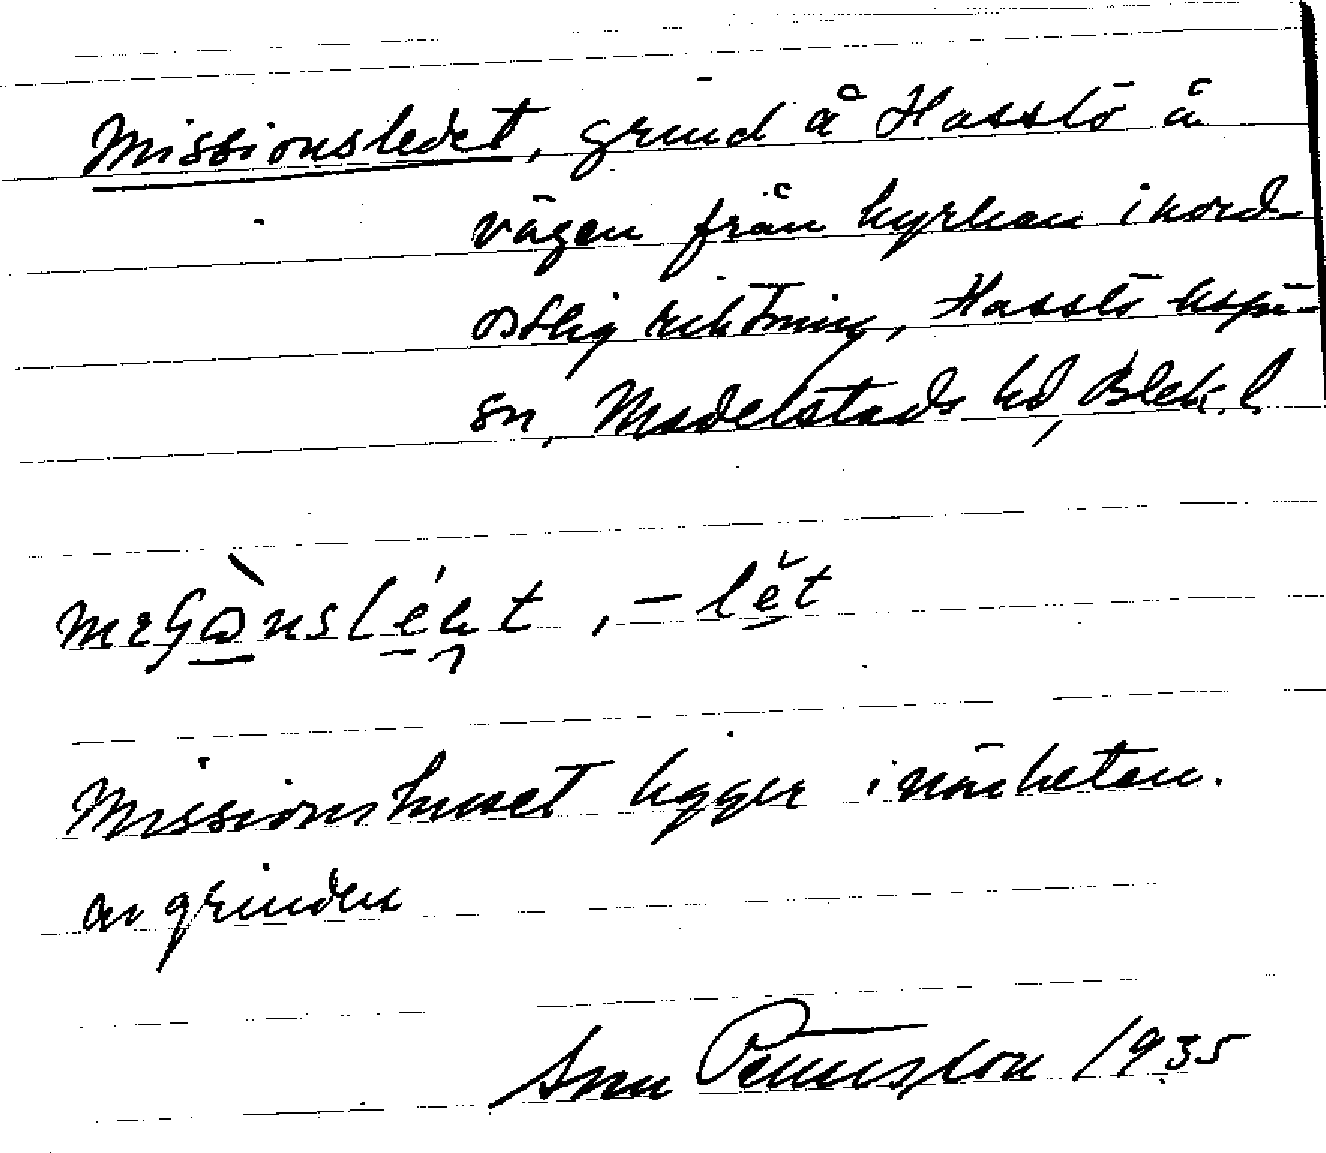 Missionsledet, grind å Hasslö å
vägen från kyrkan i nord-
ostlig riktning, Hasslö kapü-
sn, Medelstads hd, Blek. l.
-lĕt
Missionshuset ligger i närheten.
av grinden
1935